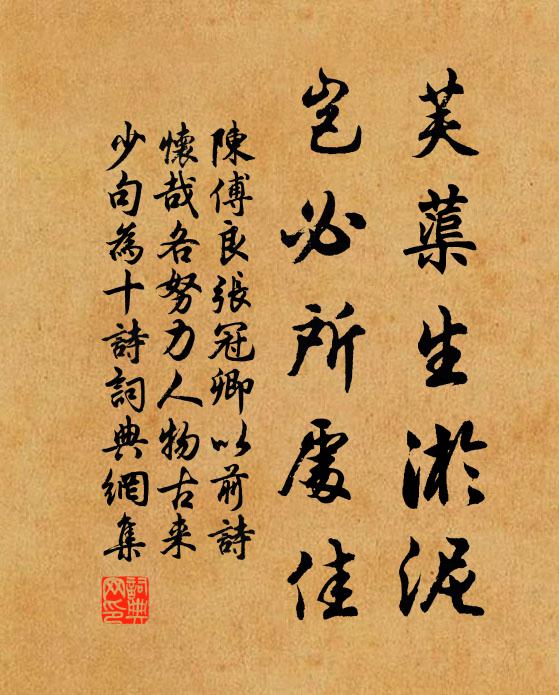 芙蕖生淤泥
豈必所處佳
陳傅良張冠卿以前詩
懷哉各努力人物古来
少句為十詩詞典網集
詞典網印